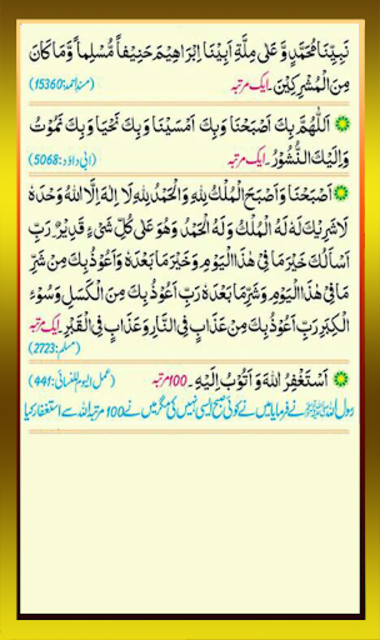 نَبِيِّنَا مُحَمَّدٍ وَّ عَلٰى مِلَّةِ اَبِيْنَا اِبْرَاهِيْمَ حَنِيْفاً مُّسْلِماً وَّمَا كَانَ
مِنَ الْمُشْرِكِيْنَ۔ ایک مرتبہ (مسند احمد:15360)
اَللّٰهُمَّ بِكَ اَصْبَحْنَا وَبِكَ اَمْسَيْنَا وَبِكَ نَحْيَا وَبِكَ نَمُوْتُ
وَاِلَيْكَ النُّشُوْرُ۔ ایک مرتبہ (ابی داؤد:5068)
اَصْبَحْنَا وَاَصْبَحَ الْمُلْكُ لِلّٰهِ وَالْحَمْدُ لِلّٰهِ لَا اِلٰهَ اِلَّا اللّٰهُ وَحْدَهٗ
لَا شَرِيْكَ لَهٗ لَهُ الْمُلْكُ وَلَهُ الْحَمْدُ وَهُوَ عَلٰى كُلِّ شَیْءٍ قَدِيْرٌ رَبِّ
اَسْأَلُكَ خَيْرَ مَا فِیْ هٰذَا الْيَوْمِ وَخَيْرَ مَا بَعْدَهٗ وَاَعُوْذُ بِكَ مِنْ شَرِّ
مَا فِیْ هٰذَا الْيَوْمِ وَشَرِّ مَا بَعْدَهٗ رَبِّ اَعُوْذُ بِكَ مِنَ الْكَسَلِ وَسُوْءِ
الْكِبَرِ رَبِّ اَعُوْذُ بِكَ مِنْ عَذَابٍ فِی النَّارِ وَعَذَابٍ فِی الْقَبْرِ ایک مرتبہ
(مسلم:2723)
اَسْتَغْفِرُ اللّٰهَ وَ اَتُوْبُ اِلَيْهِ۔ 100 مرتبہ (عمل الیوم للنسائی:441)
رسول اللہ ﷺ نے فرمایا میں نے کوئی صبح ایسی نہیں کی مگر میں نے 100 مرتبہ اللہ سے استغفار کیا